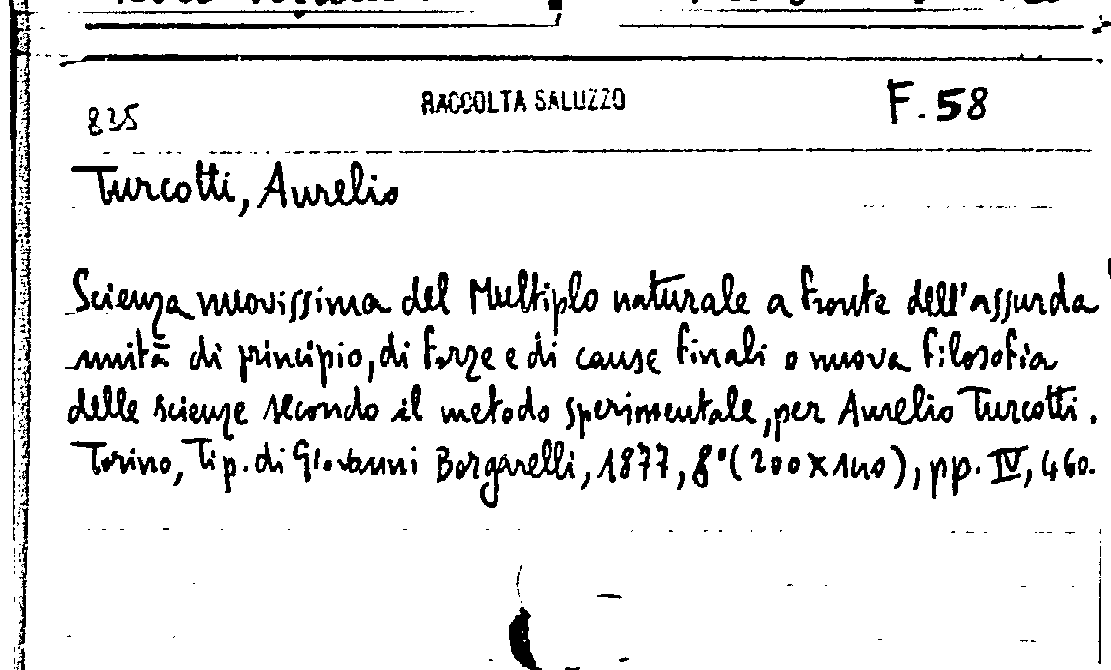 835 RACCOLTA SALUZZO F.58
Turcotti, Aurelio
Scienza nuovissima del Multiplo naturale a fronte dell'assurda
unità di principio, di forze e di cause finali o nuova filosofia
delle scienze secondo il metodo sperimentale, per Aurelio Turcotti.
Torino, Tip. di Giovanni Borgarelli, 1877, 8° (200x140), pp. IV, 460.